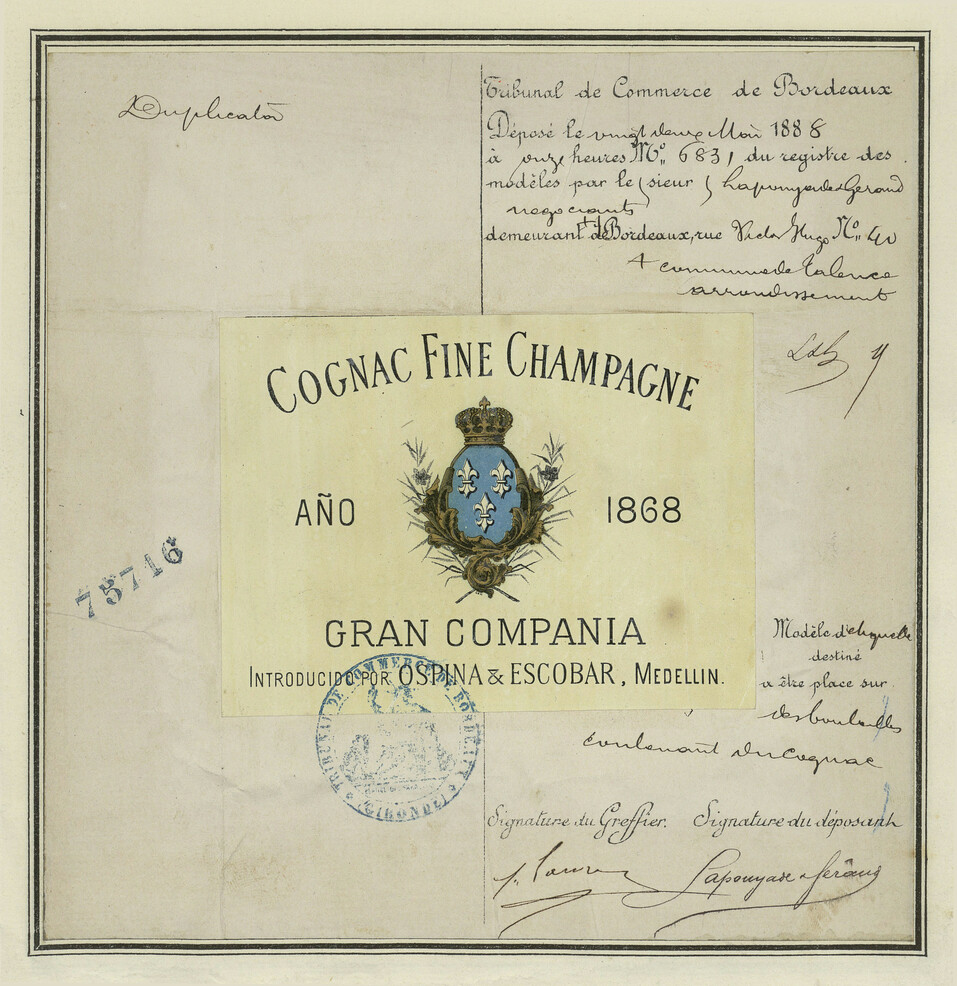 Duplicata
Tribunal de Commerce de Bordeaux
Déposé le vingt deux Mai 1888
à onze heures No. 6831 du registre des
modèles par le sieur Lapouyade & Gerand
negociants
demeurant à Bordeaux, rue Victor Hugo No. 40
+ commune de Talence
arrondissement
COGNAC FINE CHAMPAGNE
AÑO 1868
GRAN COMPANIA
INTRODUCIDO POR OSPINA & ESCOBAR, MEDELLIN.
75716
Modèle d'etiquette
destiné
a être place sur
des bouteilles
contenant du Cognac
TRIBUNAL DE COMMERCE DE BORDEAUX
(GIRONDE)
Signature du Greffier. Signature du déposant
Lapouyade & Gérand